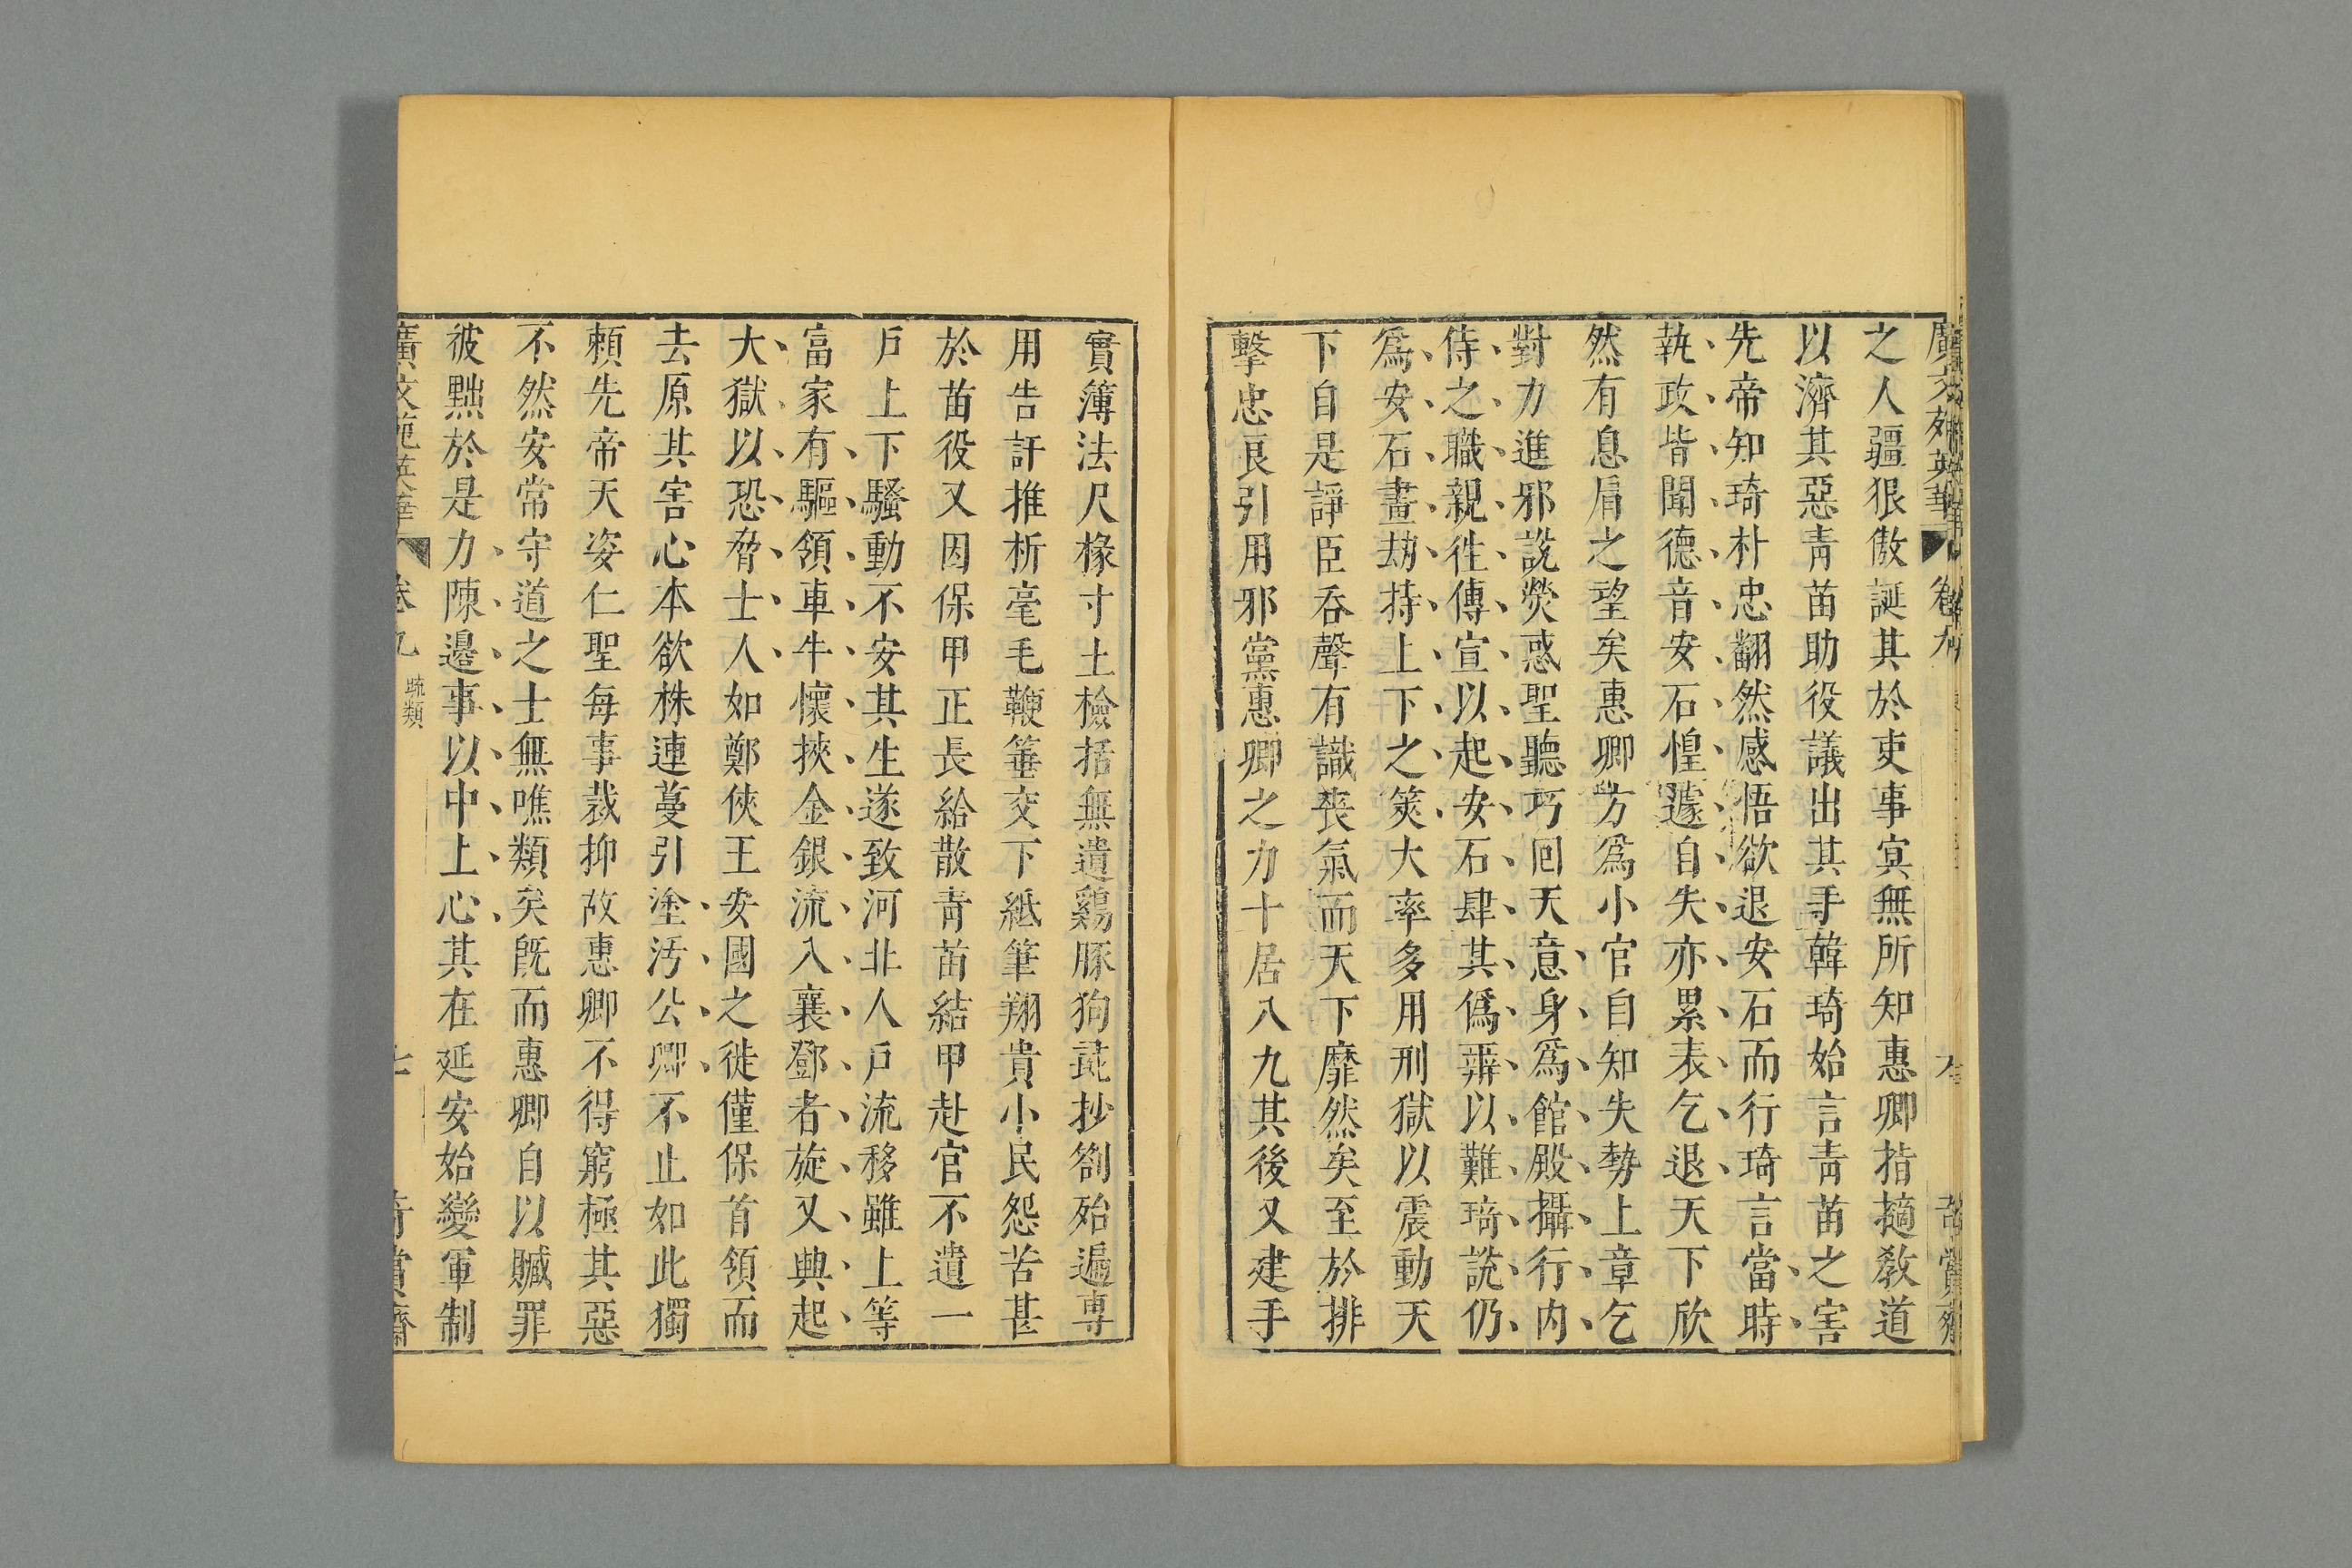 之人疆狠傲誕其於吏事㝠無所知惠卿指擿教道
以濟其惡靑苗助役議出其手韓琦始言靑苗之害
先帝知琦朴忠翻然感悟欲退安石而行琦言當時
執政皆聞德音安石惶遽自失亦累表乞退天下欣
然有息肩之望矣惠卿方爲小官自知失勢上章乞
對力進邪說熒惑聖聽巧囘天意身爲館殿攝行内
侍之職親徃傳宣以起安石肆其僞辯以難琦說仍
爲安石畫劫持上下之筴大率多用刑獄以震動天
下自是諍臣吞聲有識喪氣而天下靡然矣至於排
擊忠良引用邪黨惠卿之力十居八九其後又建手
實簿法尺椽寸土檢括無遺鷄豚狗彘抄劄殆遍專
用告訐推析毫毛鞭箠交下紙筆翔貴小民怨苦甚
於苗役又因保甲正長給散靑苗結甲赴官不遺一
戶上下騷動不安其生遂致河北人戶流移雖上等
富家有驅領車牛懷挾金銀流入襄鄧者旋又興起
大獄以恐脅士人如鄭俠王安國之徒僅保首領而
去原其害心本欲株連蔓引塗汚公卿不止如此獨
賴先帝天姿仁聖每事裁抑故惠卿不得窮極其惡
不然安常守道之士無噍類矣旣而惠卿自以贓罪
彼黜於是力陳邊事以中上心其在延安始變軍制
廣文苑英華 卷九 疏類 七 奇賞齋